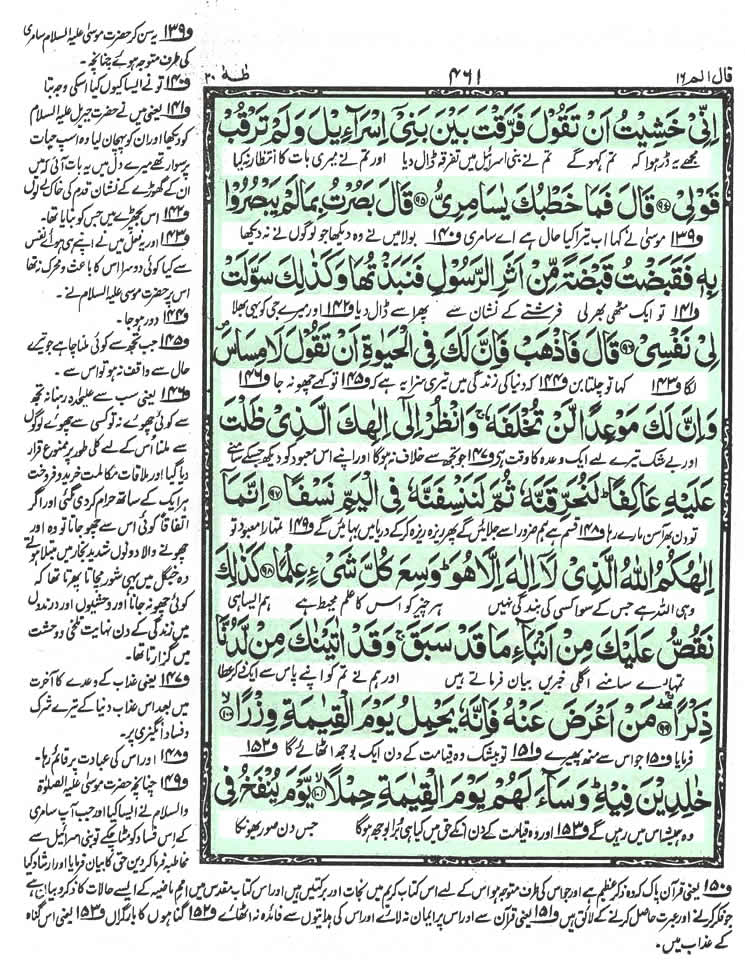 قال الم ١٦
٤٦١
طٰهٰ ٢٠
اِنِّیْ خَشِیْتُ اَنْ تَقُوْلَ فَرَّقْتَ بَیْنَ بَنِیْۤ اِسْرَآءِیْلَ وَلَمْ تَرْقُبْ
مجھے یہ ڈر ہوا کہ تم کہو گے تم نے بنی اسرائیل میں تفرقہ ڈال دیا اور تم نے میری بات کا انتظار نہ کیا
قَوْلِیْ ﴿۹۴﴾ قَالَ فَمَا خَطْبُكَ یٰسَامِرِیُّ ﴿۹۵﴾ قَالَ بَصُرْتُ بِمَا لَمْ یَبْصُرُوْا
و۱۳۹ موسیٰ نے کہا اب تیرا کیا حال ہے اے سامری و۱۴۰ بولا میں نے وہ دیکھا جو لوگوں نے نہ دیکھا
بِهٖ فَقَبَضْتُ قَبْضَةً مِّنْ اَثَرِ الرَّسُوْلِ فَنَبَذْتُهَا وَكَذٰلِكَ سَوَّلَتْ
و۱۴۱ تو ایک مٹھی بھر لی فرشتے کے نشان سے پھر اسے ڈال دیا و۱۴۲ اور میرے جی کو یہی بھلا
لِیْ نَفْسِیْ ﴿۹۶﴾ قَالَ فَاذْهَبْ فَاِنَّ لَكَ فِی الْحَیٰوةِ اَنْ تَقُوْلَ لَا مِسَاسَ
لگا و۱۴۳ کہا تو چلتا بن و۱۴۴ کہ دنیا کی زندگی میں تیری سزا یہ ہے کہ و۱۴۵ تو کہے چھو نہ جا و۱۴۶
وَاِنَّ لَكَ مَوْعِدًا لَّنْ تُخْلَفَهٗ ۚ وَانْظُرْ اِلٰۤی اِلٰهِكَ الَّذِیْ ظَلْتَ
اور بے شک تیرے لیے ایک وعدہ کا وقت ہے و۱۴۷ جو تجھ سے خلاف نہ ہوگا اور اپنے اس معبود کو دیکھ جس کے سامنے
عَلَیْهِ عَاكِفًا ؕ لَنُحَرِّقَنَّهٗ ثُمَّ لَنَنْسِفَنَّهٗ فِی الْیَمِّ نَسْفًا ﴿۹۷﴾ اِنَّمَاۤ
تو دن بھر آسن مارے رہا و۱۴۸ قسم ہے ہم ضرور اسے جلائیں گے پھر ریزہ ریزہ کر کے دریا میں بہائیں گے و۱۴۹ تمہارا معبود تو
اِلٰهُكُمُ اللّٰهُ الَّذِیْ لَاۤ اِلٰهَ اِلَّا هُوَ ؕ وَسِعَ كُلَّ شَیْءٍ عِلْمًا ﴿۹۸﴾ كَذٰلِكَ
وہی اللہ ہے جس کے سوا کسی کی بندگی نہیں ہر چیز کو اس کا علم محیط ہے ہم ایسا ہی
نَقُصُّ عَلَیْكَ مِنْ اَنْۢبَآءِ مَا قَدْ سَبَقَ ۚ وَقَدْ اٰتَیْنٰكَ مِنْ لَّدُنَّا
تمہارے سامنے اگلی خبریں بیان فرماتے ہیں اور ہم نے تم کو اپنے پاس سے ایک ذکر عطا
ذِكْرًا ﴿۹۹﴾ مَنْ اَعْرَضَ عَنْهُ فَاِنَّهٗ یَحْمِلُ یَوْمَ الْقِیٰمَةِ وِزْرًا ﴿۱۰۰﴾
فرمایا و۱۵۰ جو اس سے منھ پھیرے و۱۵۱ تو بیشک وہ قیامت کے دن ایک بوجھ اٹھائے گا و۱۵۲
خٰلِدِیْنَ فِیْهِ ؕ وَسَآءَ لَهُمْ یَوْمَ الْقِیٰمَةِ حِمْلًا ﴿۱۰۱﴾ یَّوْمَ یُنْفَخُ فِی
وہ ہمیشہ اس میں رہیں گے و۱۵۳ اور وہ قیامت کے دن انکے حق میں کیا ہی برا بوجھ ہوگا جس دن صور پھونکا
و۱۳۹ یہ سن کر حضرت موسیٰ علیہ السلام سامری
کی طرف متوجہ ہوئے چنانچہ۔
و۱۴۰ تو نے ایسا کیوں کیا اسکی وجہ بتا
و۱۴۱ یعنی میں نے حضرت جبریل علیہ السلام
کو دیکھا اور ان کو پہچان لیا وہ اسپ حیات
پر سوار تھے میرے دل میں یہ بات آئی کہ میں
ان کے گھوڑے کے نشان قدم کی خاک لے لوں
و۱۴۲ اس بچھڑے میں جس کو بنایا تھا۔
و۱۴۳ اور یہ فعل میں نے اپنے ہی ہوائے نفس
سے کیا کوئی دوسرا اس کا باعث و محرک نہ تھا
اس پر حضرت موسیٰ علیہ السلام نے۔
و۱۴۴ دور ہو جا۔
و۱۴۵ جب تجھ سے کوئی ملنا چاہے جو تیرے
حال سے واقف نہ ہو تو اس سے۔
و۱۴۶ یعنی سب سے علیحدہ رہنا نہ تجھ
سے کوئی چھوئے نہ تو کسی سے چھوئے لوگوں
سے ملنا اس کے لیے کلی طور پر ممنوع قرار
دیا گیا اور ملاقات مکالمت خرید و فروخت
ہر ایک کے ساتھ حرام کر دی گئی اور اگر
اتفاقاً کوئی اس سے چھو جاتا تو وہ اور
چھونے والا دونوں شدید بخار میں مبتلا ہوتے
وہ جنگل میں یہی شور مچاتا پھرتا تھا کہ
کوئی چھو نہ جانا اور وحشیوں اور درندوں
میں زندگی کے دن نہایت تلخی و وحشت
میں گزارتا تھا۔
و۱۴۷ یعنی عذاب کے وعدے کا آخرت
میں بعد اس عذاب دنیا کے تیرے شرک
و فساد انگیزی پر۔
و۱۴۸ اور اس کی عبادت پر قائم رہا۔
و۱۴۹ چنانچہ حضرت موسیٰ علیہ الصلوٰۃ
والسلام نے ایسا کیا اور جب آپ سامری
کے اس فساد کو مٹا چکے تو بنی اسرائیل سے
مخاطبہ فرما کر دین حق کا بیان فرمایا اور ارشاد کیا
و۱۵۰ یعنی قرآن پاک کہ وہ ذکر عظیم ہے اور جو اس کی طرف متوجہ ہو اس کے لیے اس کتاب کریم میں نجات اور برکتیں ہیں اور اس کتاب مقدس میں امم ماضیہ کے ایسے حالات کا ذکر و بیان ہے
جو فکر کرنے اور عبرت حاصل کرنے کے لائق ہیں و۱۵۱ یعنی قرآن سے اور اس پر ایمان نہ لائے اور اس کی ہدایتوں سے فائدہ نہ اٹھائے و۱۵۲ گناہوں کا بارگراں و۱۵۳ یعنی اس گناہ
کے عذاب میں۔